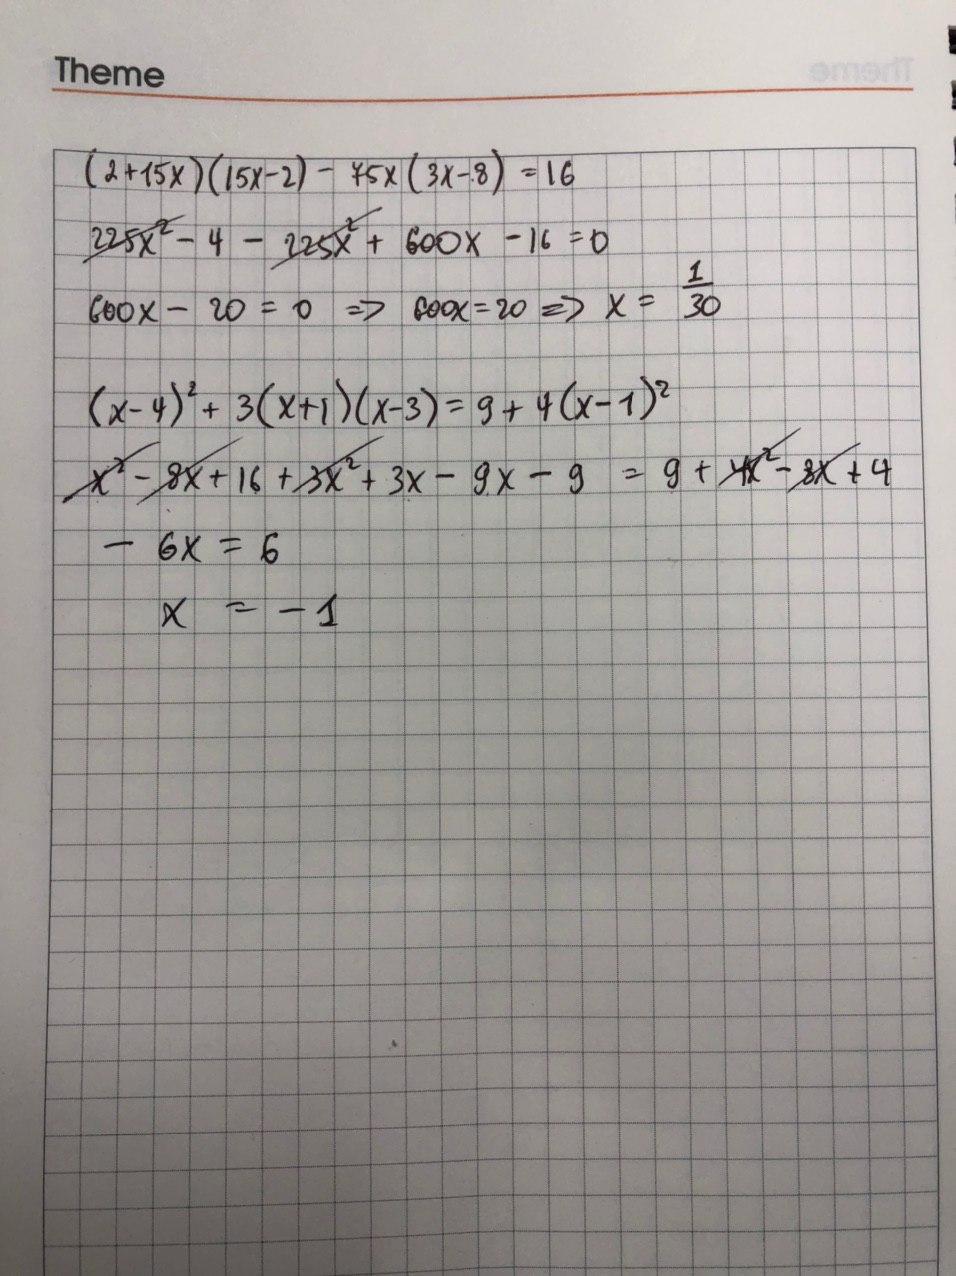 Theme
(2+15x)(15x-2) - 75x(3x-8) = 16
225x² - 4 - 225x² + 600x - 16 = 0
600x - 20 = 0 => 600x = 20 => x = 1/30
(x-4)² + 3(x+1)(x-3) = 9 + 4(x-1)²
x² - 8x + 16 + 3x² + 3x - 9x - 9 = 9 + 4x² - 8x + 4
- 6x = 6
x = -1